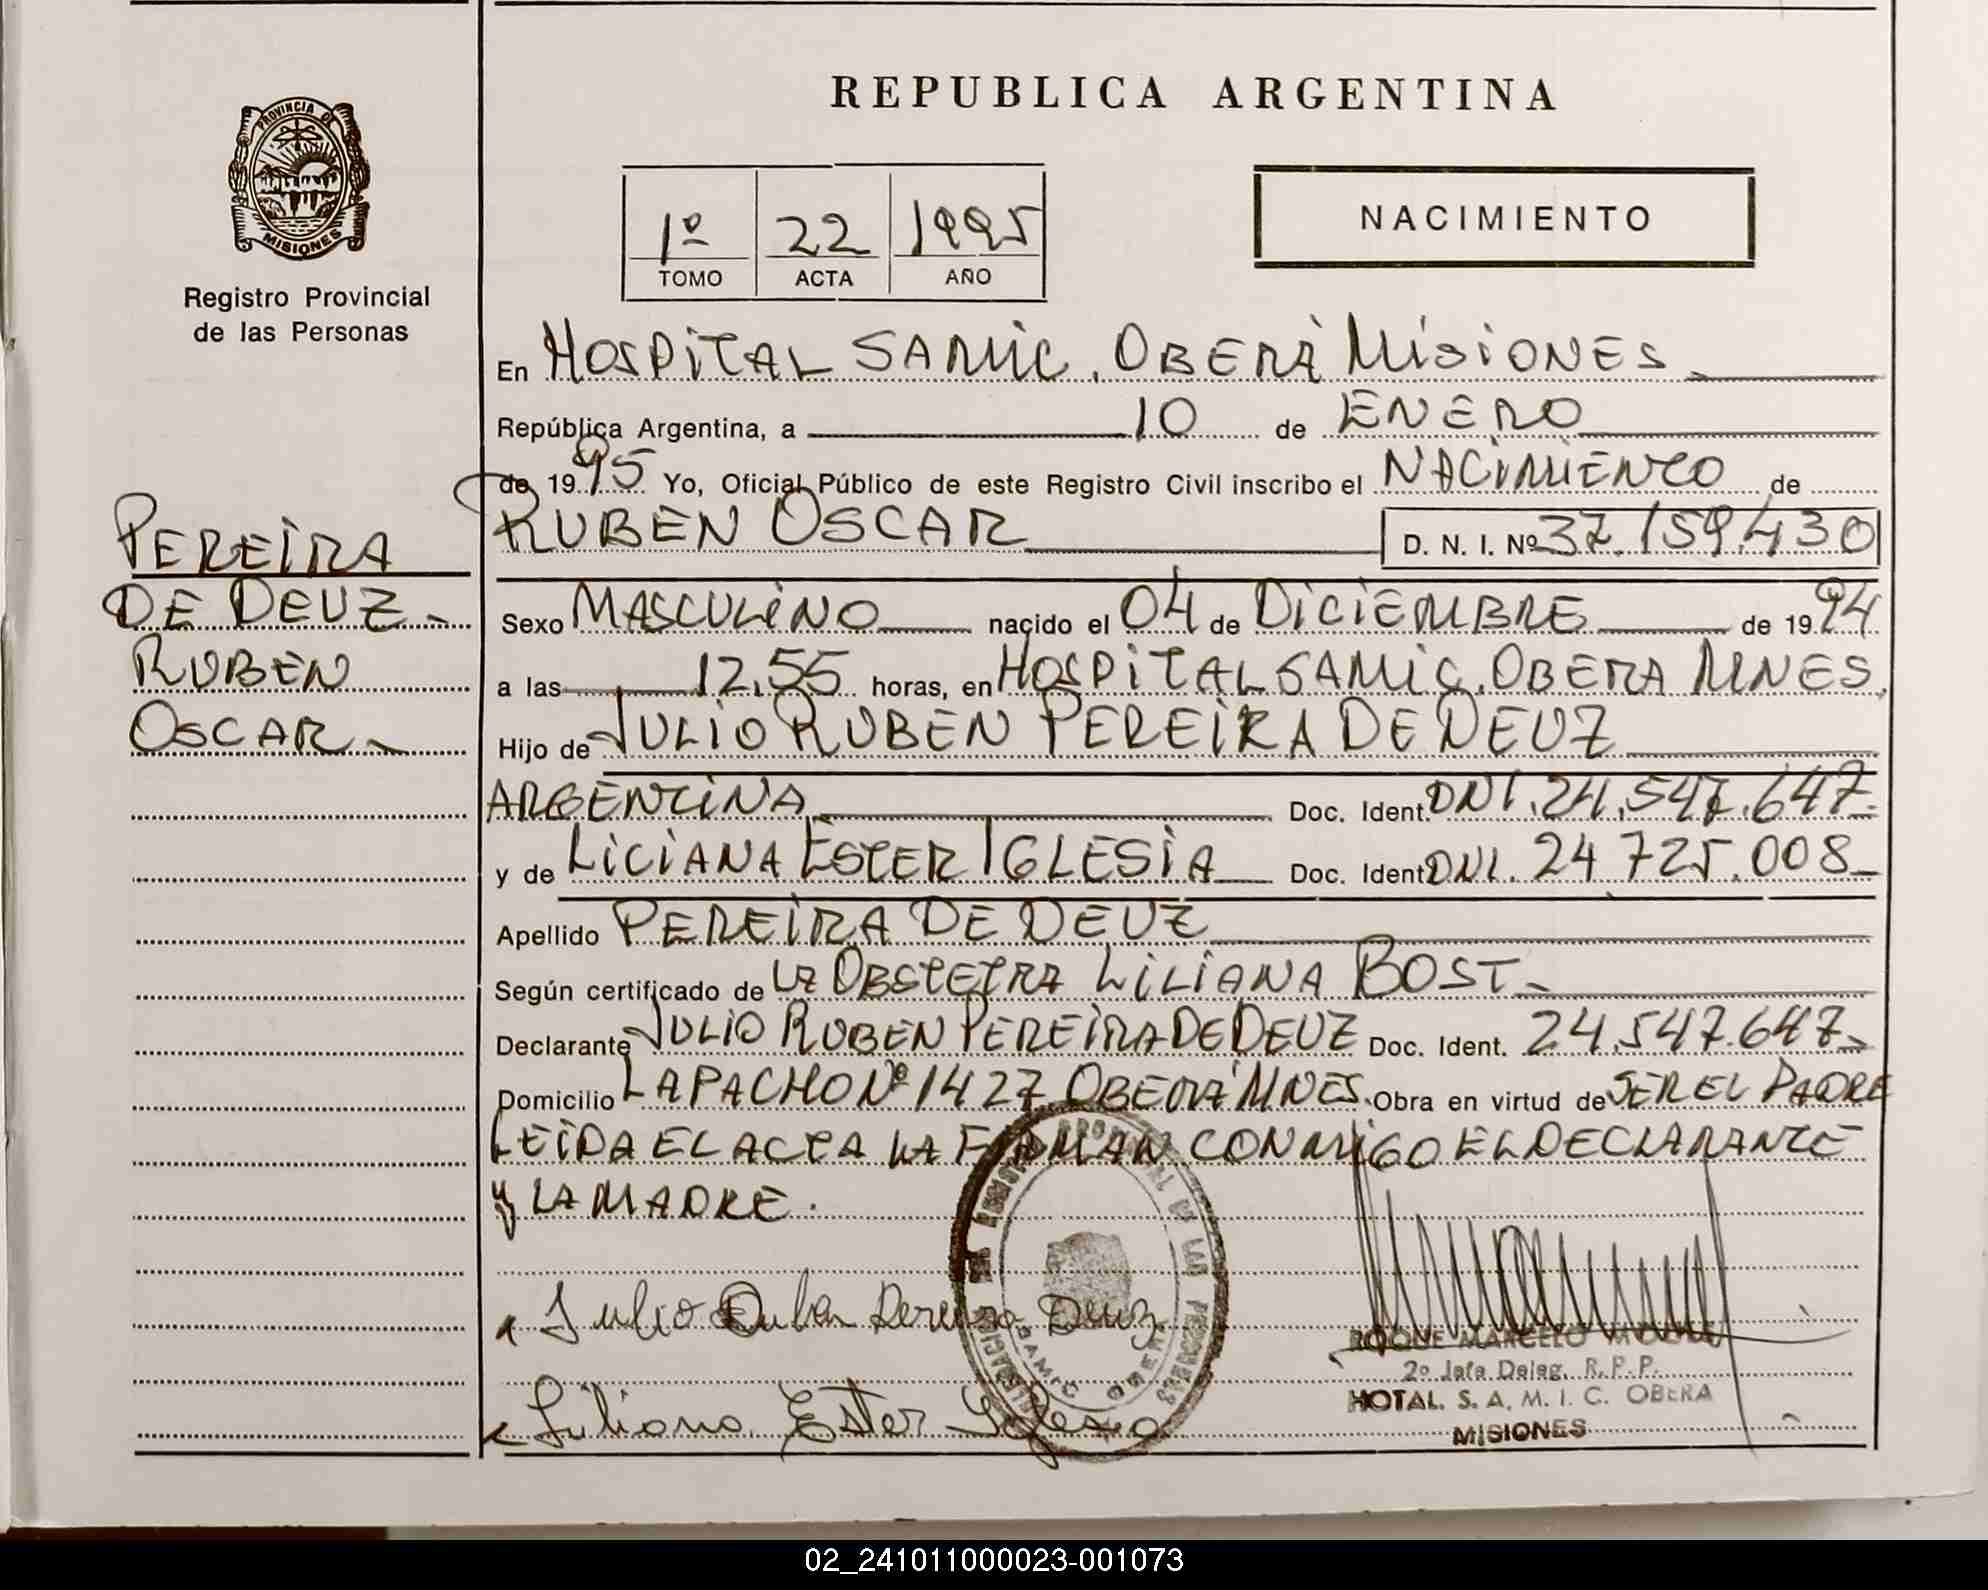 REPUBLICA ARGENTINA
PROVINCIA DE
MISIONES
Registro Provincial
de las Personas
1º 22 1995
TOMO ACTA AÑO
NACIMIENTO
En HOSPITAL SAMIC. OBERÁ MISIONES
República Argentina, a 10 de ENERO
de 1995 Yo, Oficial Público de este Registro Civil inscribo el NACIMIENTO de
RUBEN OSCAR D. N. I. Nº 37.159.430
PEREIRA
DE DEUZ
RUBEN
OSCAR
Sexo MASCULINO nacido el 04 de DICIEMBRE de 1994
a las 12,55 horas, en HOSPITAL SAMIC, OBERA MNES.
Hijo de JULIO RUBEN PEREIRA DE DEUZ
ARGENTINA Doc. Ident. DNI. 24.547.647
y de LICIANA ESTER IGLESIA Doc. Ident. DNI. 24.725.008
Apellido PEREIRA DE DEUZ
Según certificado de LA OBSTETRA LILIANA BOST
Declarante JULIO RUBEN PEREIRA DE DEUZ Doc. Ident. 24.547.647
Domicilio LAPACHO Nº 1427 OBERÁ MNES. Obra en virtud de SER EL PADRE
LEIDA EL ACTA LA FIRMAN CONMIGO EL DECLARANTE
Y LA MADRE.
Julio Ruben Pereira Deuz
Liliana Ester Iglesia
SAMIC OBERA
ROQUE MARCELO
2º Jefe Deleg. R. P. P.
HOTAL. S. A. M. I. C. OBERA
MISIONES
02_241011000023-001073